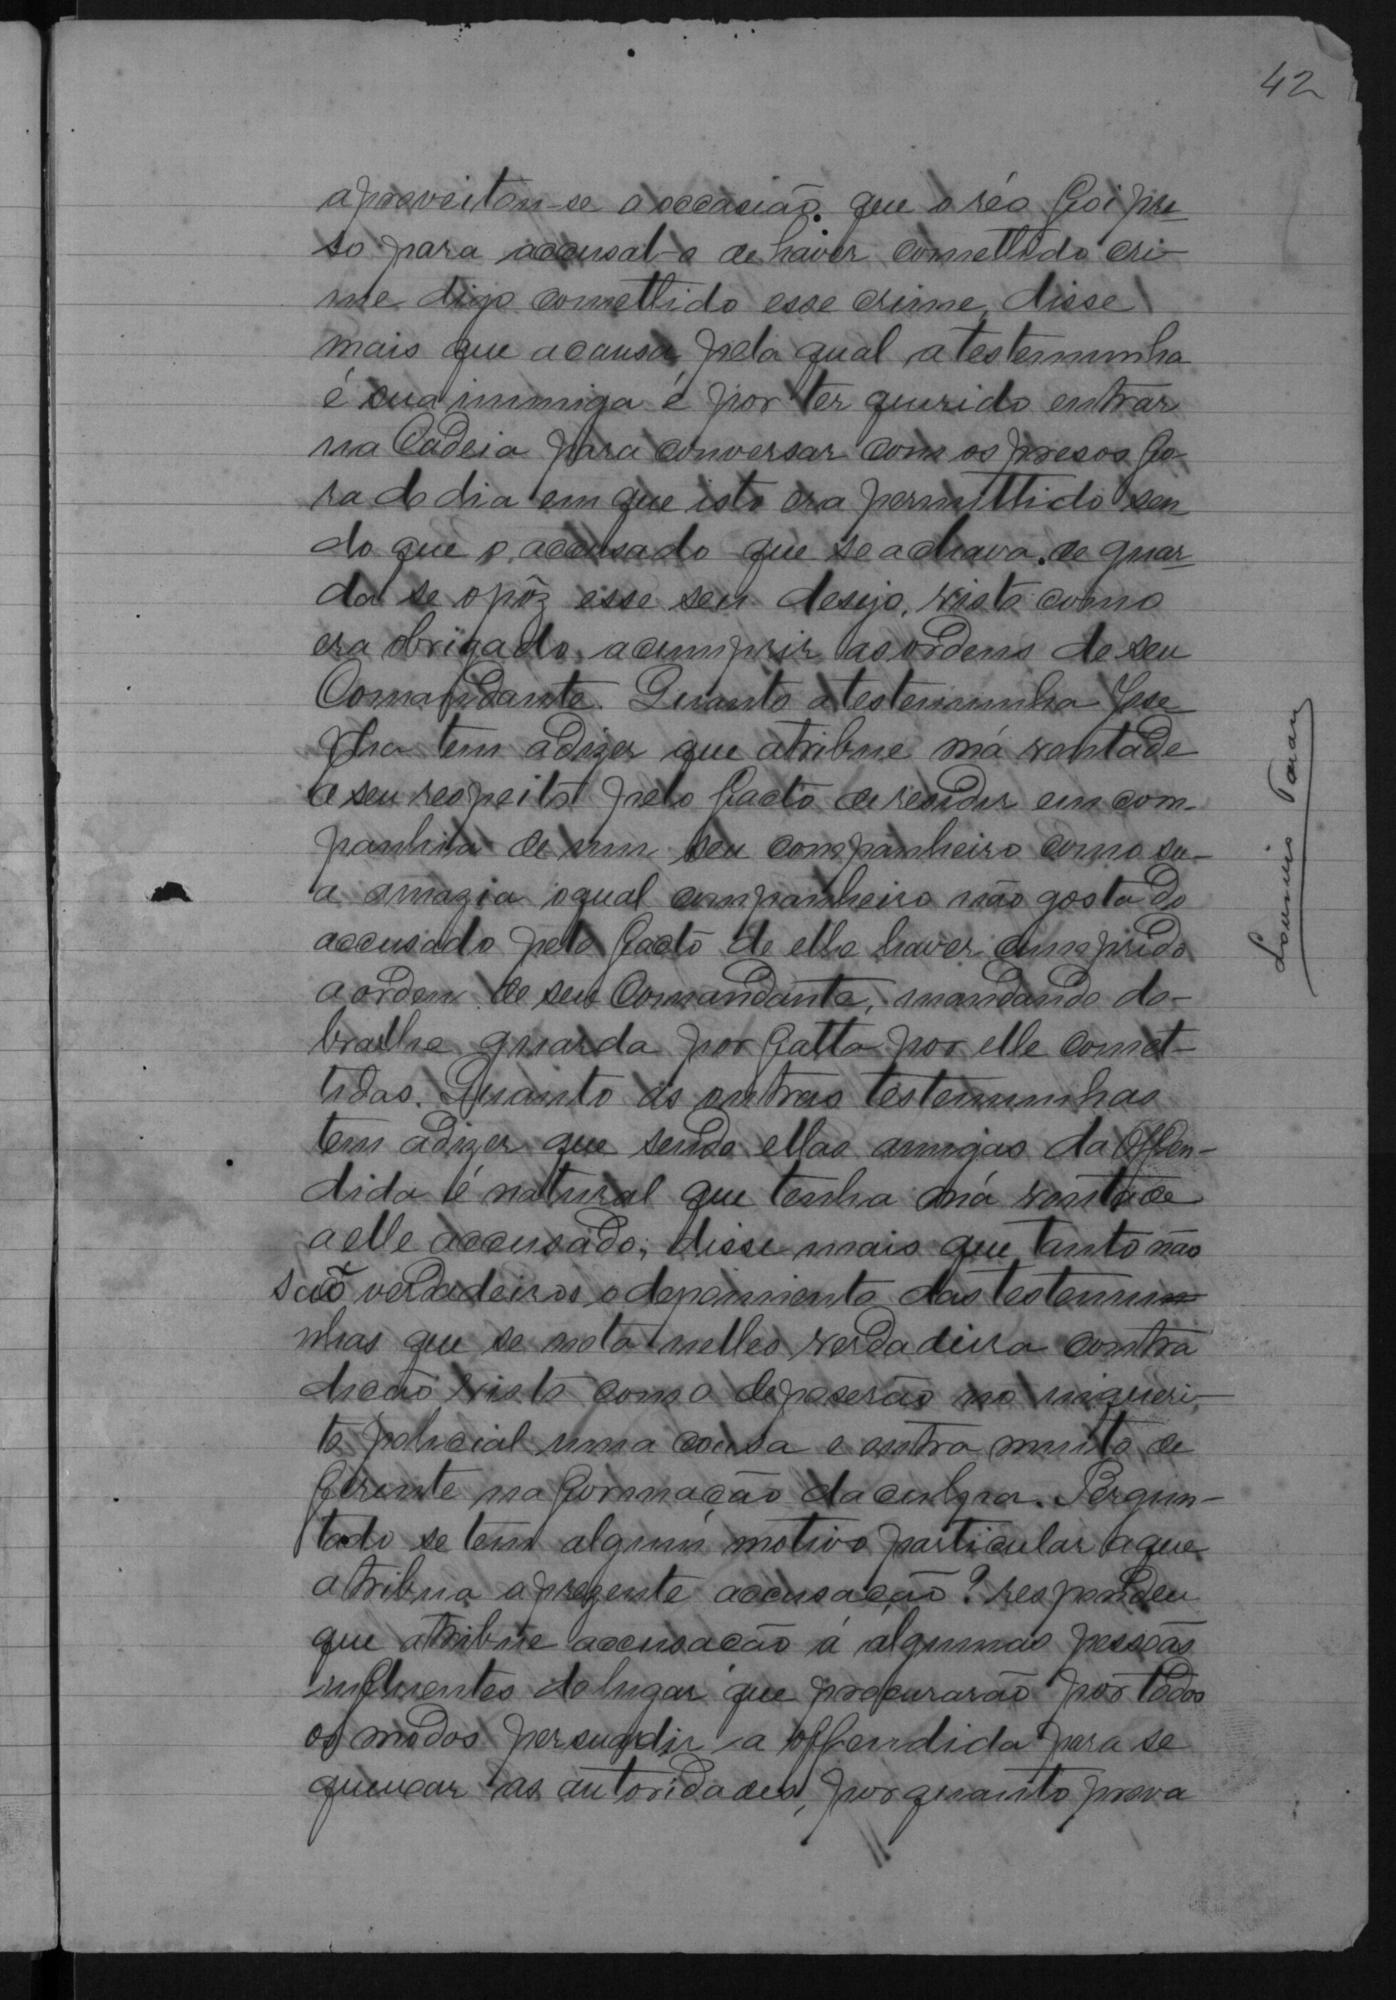 42
aproveitou-se a occasião que o réo foi pre
so para accusal-o de haver comettido cri-
me digo comettido esse crime, disse
mais que a causa pela qual a testemunha
é sua inimiga é por ter querido entrar
na Cadeia para conversar com os presos fo-
ra do dia em que isto era permittido sen
do que o accusado que se achava de guar
da se opôz esse seu desejo, visto como
era obrigado a cumprir as ordens de seu
Comandante. Quanto a testemunha Jose
pha tem a dizer que atribue má vontade
a seu respeito pelo facto de residir em com-
panhia de um seu companheiro como su-
a amazia o qual companheiro não gosta do
accusado pelo facto de elle haver cumprido
a ordem de seu Comandante, mandando do-
brar lhe guarda por falta por elle comet-
tidas. Quanto as outras testemunhas
tem a dizer que sendo ellas amigas da offen-
dida é natural que tenha má vontade
a elle accusado, disse mais que tanto não
são verdadeiros o depoimento das testemu
nhas que se nota nelles verdadeira contra
dicão visto como deposerão no inqueri-
to policial uma cousa e outra muito di
ferente na formação da culpa. Pergun-
tado se tem algum motivo particular a que
atribua a prezente accusação? respondeu
que atribue accusacão á algumas pessoas
influentes do lugar que procurarão por todos
os modos persuadir a offendida para se
queixar as autoridades, porquanto prova